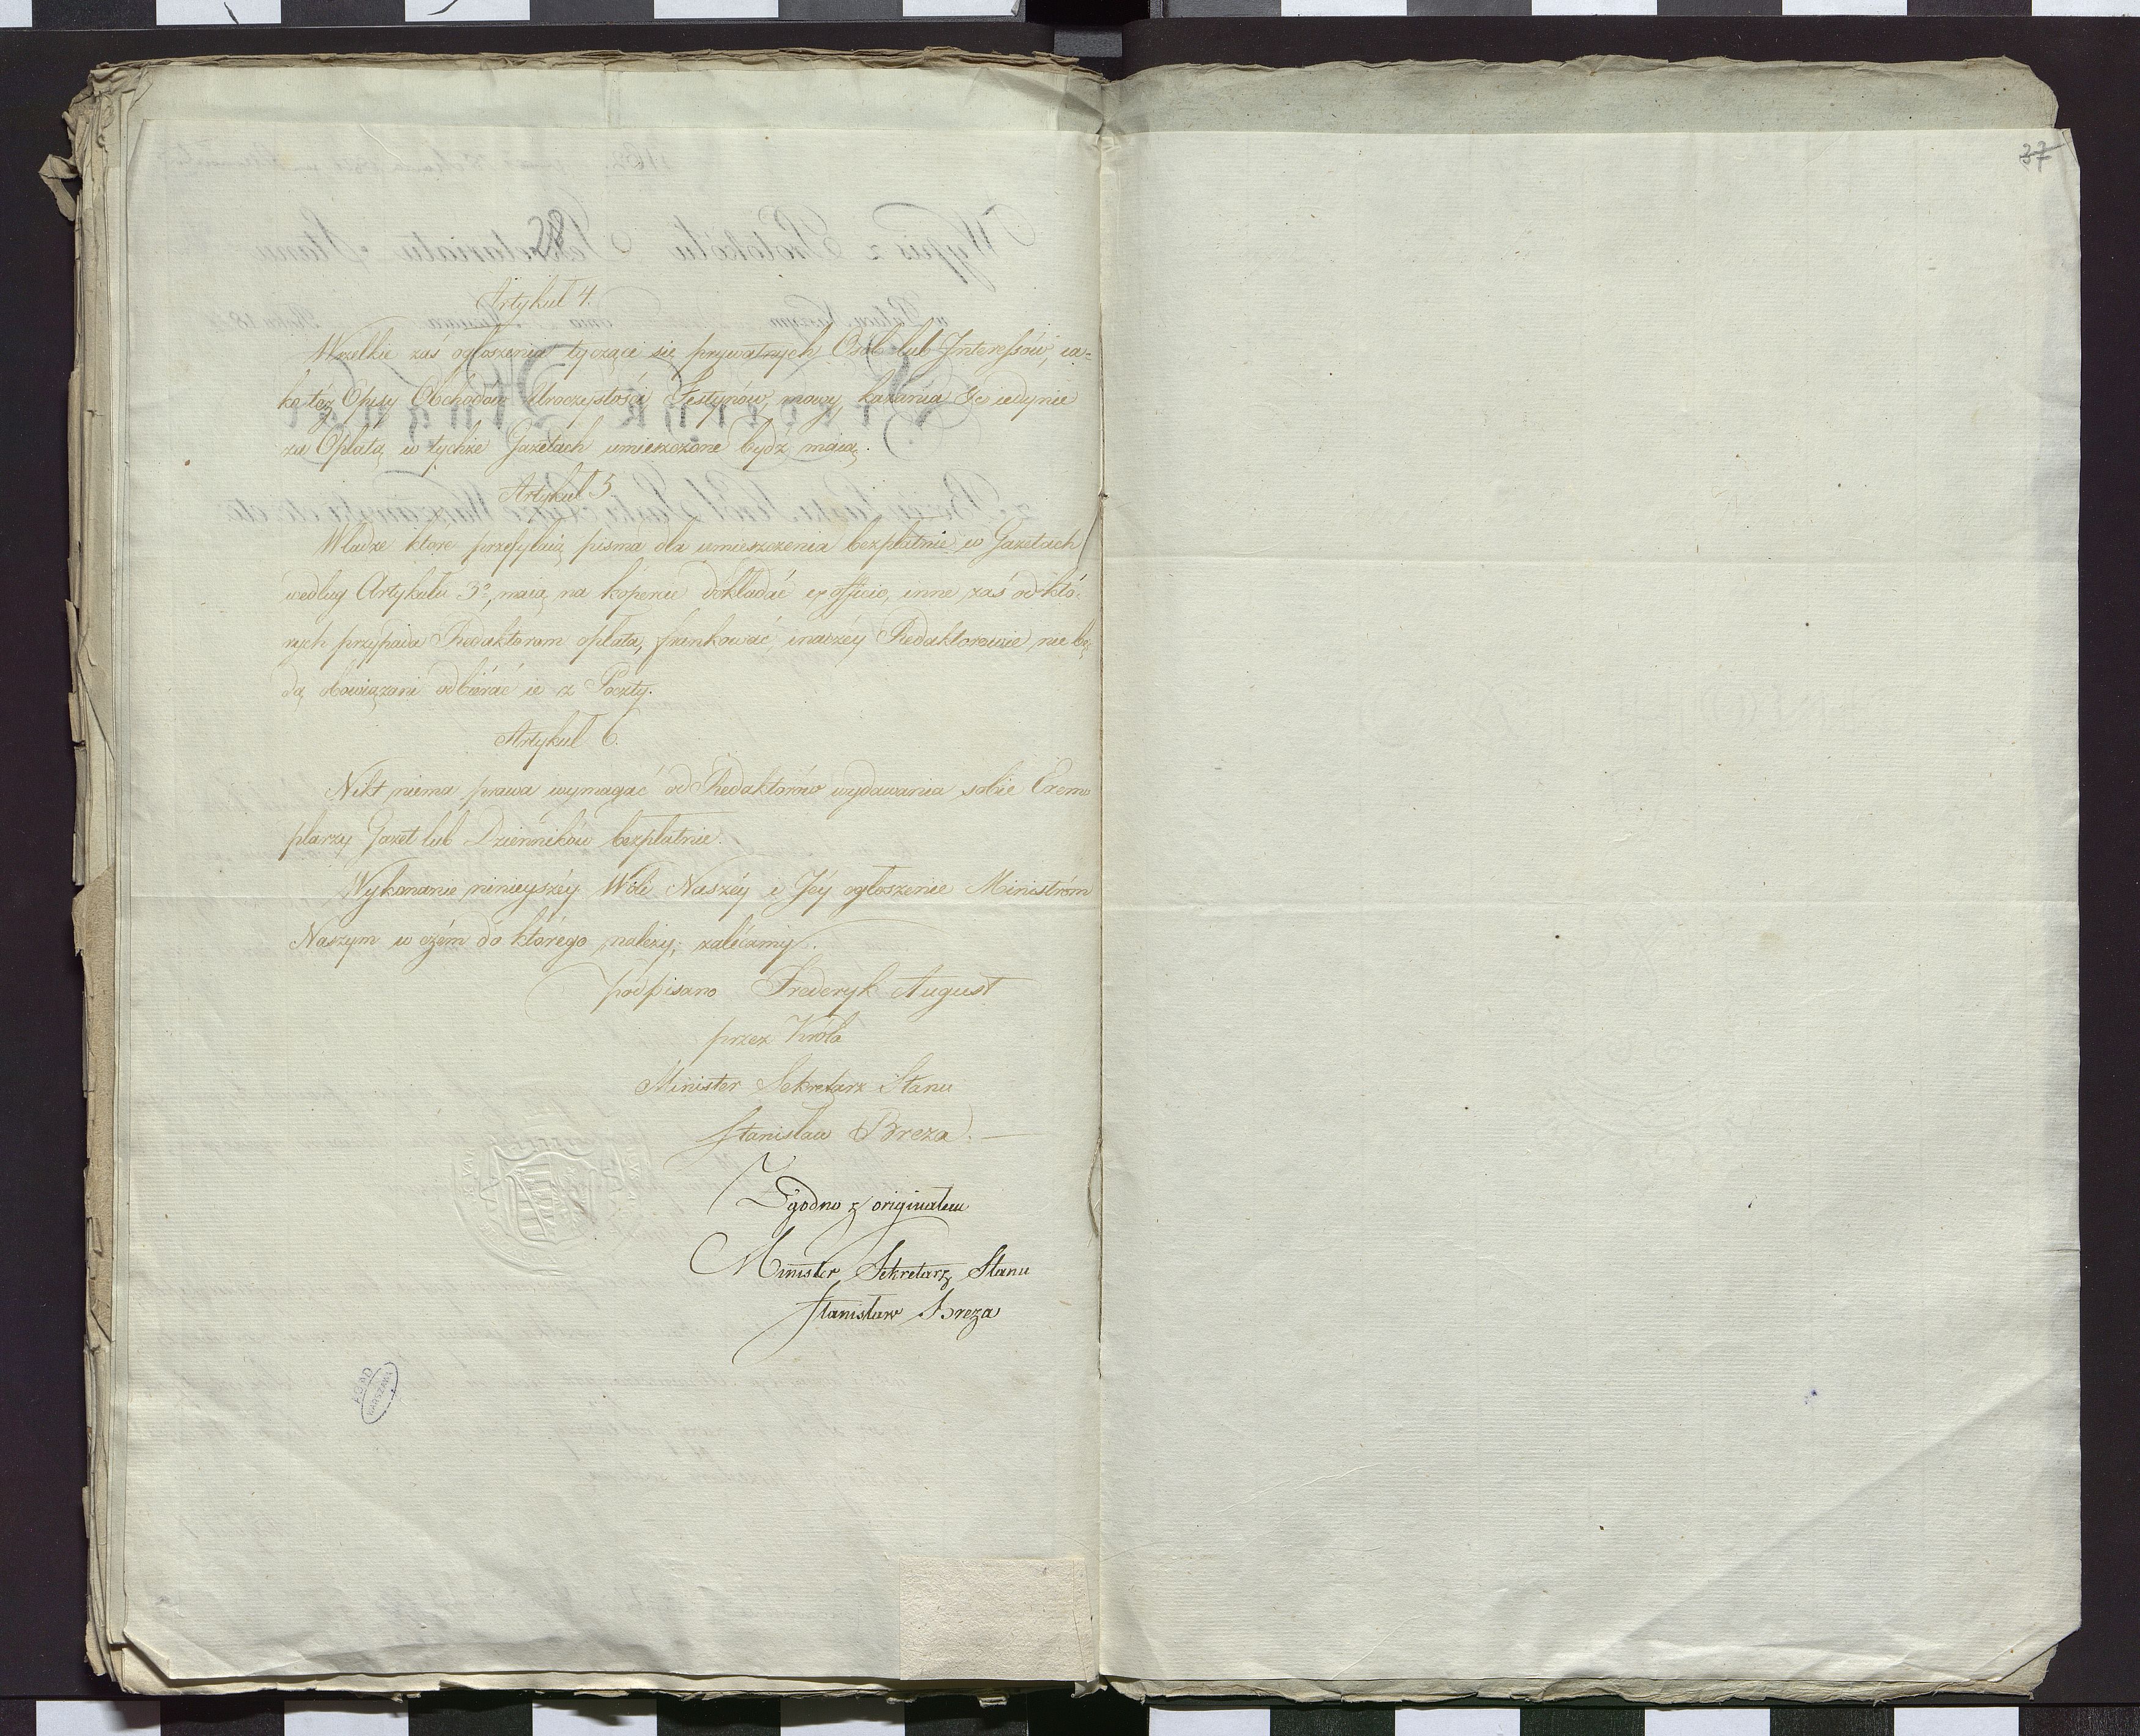 37
Artykuł 4.
Wszelkie zaś ogłoszenia tyczące się prywatnych Osób lub Interessów, ia-
ko też Opisy Obchodów Uroczystości Festynów, mowy, kazania &c iedynie
za Opłatą w tychże Gazetach umieszczone bydź maią.
Artykuł 5
Władze ktore przesyłaią pisma dla umieszczenia bezpłatnie w Gazetach
według Artykułu 3º, maią na kopercie dokładać ex officio, inne zaś od któ-
rych przypada Redaktorom opłata, frankować, inaczéy Redaktorowie nie bę-
dą obowiązani odbiérać ie z Poczty.
Artykuł 6.
Nikt niema prawa wymagać od Redaktorów wydawania sobie Exem-
plarzy Gazet lub Dzienników bezpłatnie.
Wykonanie ninieyszéy Woli Naszéy i Jéy ogłoszenie Ministróm
Naszym w czém do którego należy, zalécamy.
podpisano Frederyk August
przez Króla
Minister Sekretarz Stanu
Stanisław Breza.
Zgodno z originałem
Minister Sekretarz Stanu
Stanisław Breza
AGAD
WARSZAWA